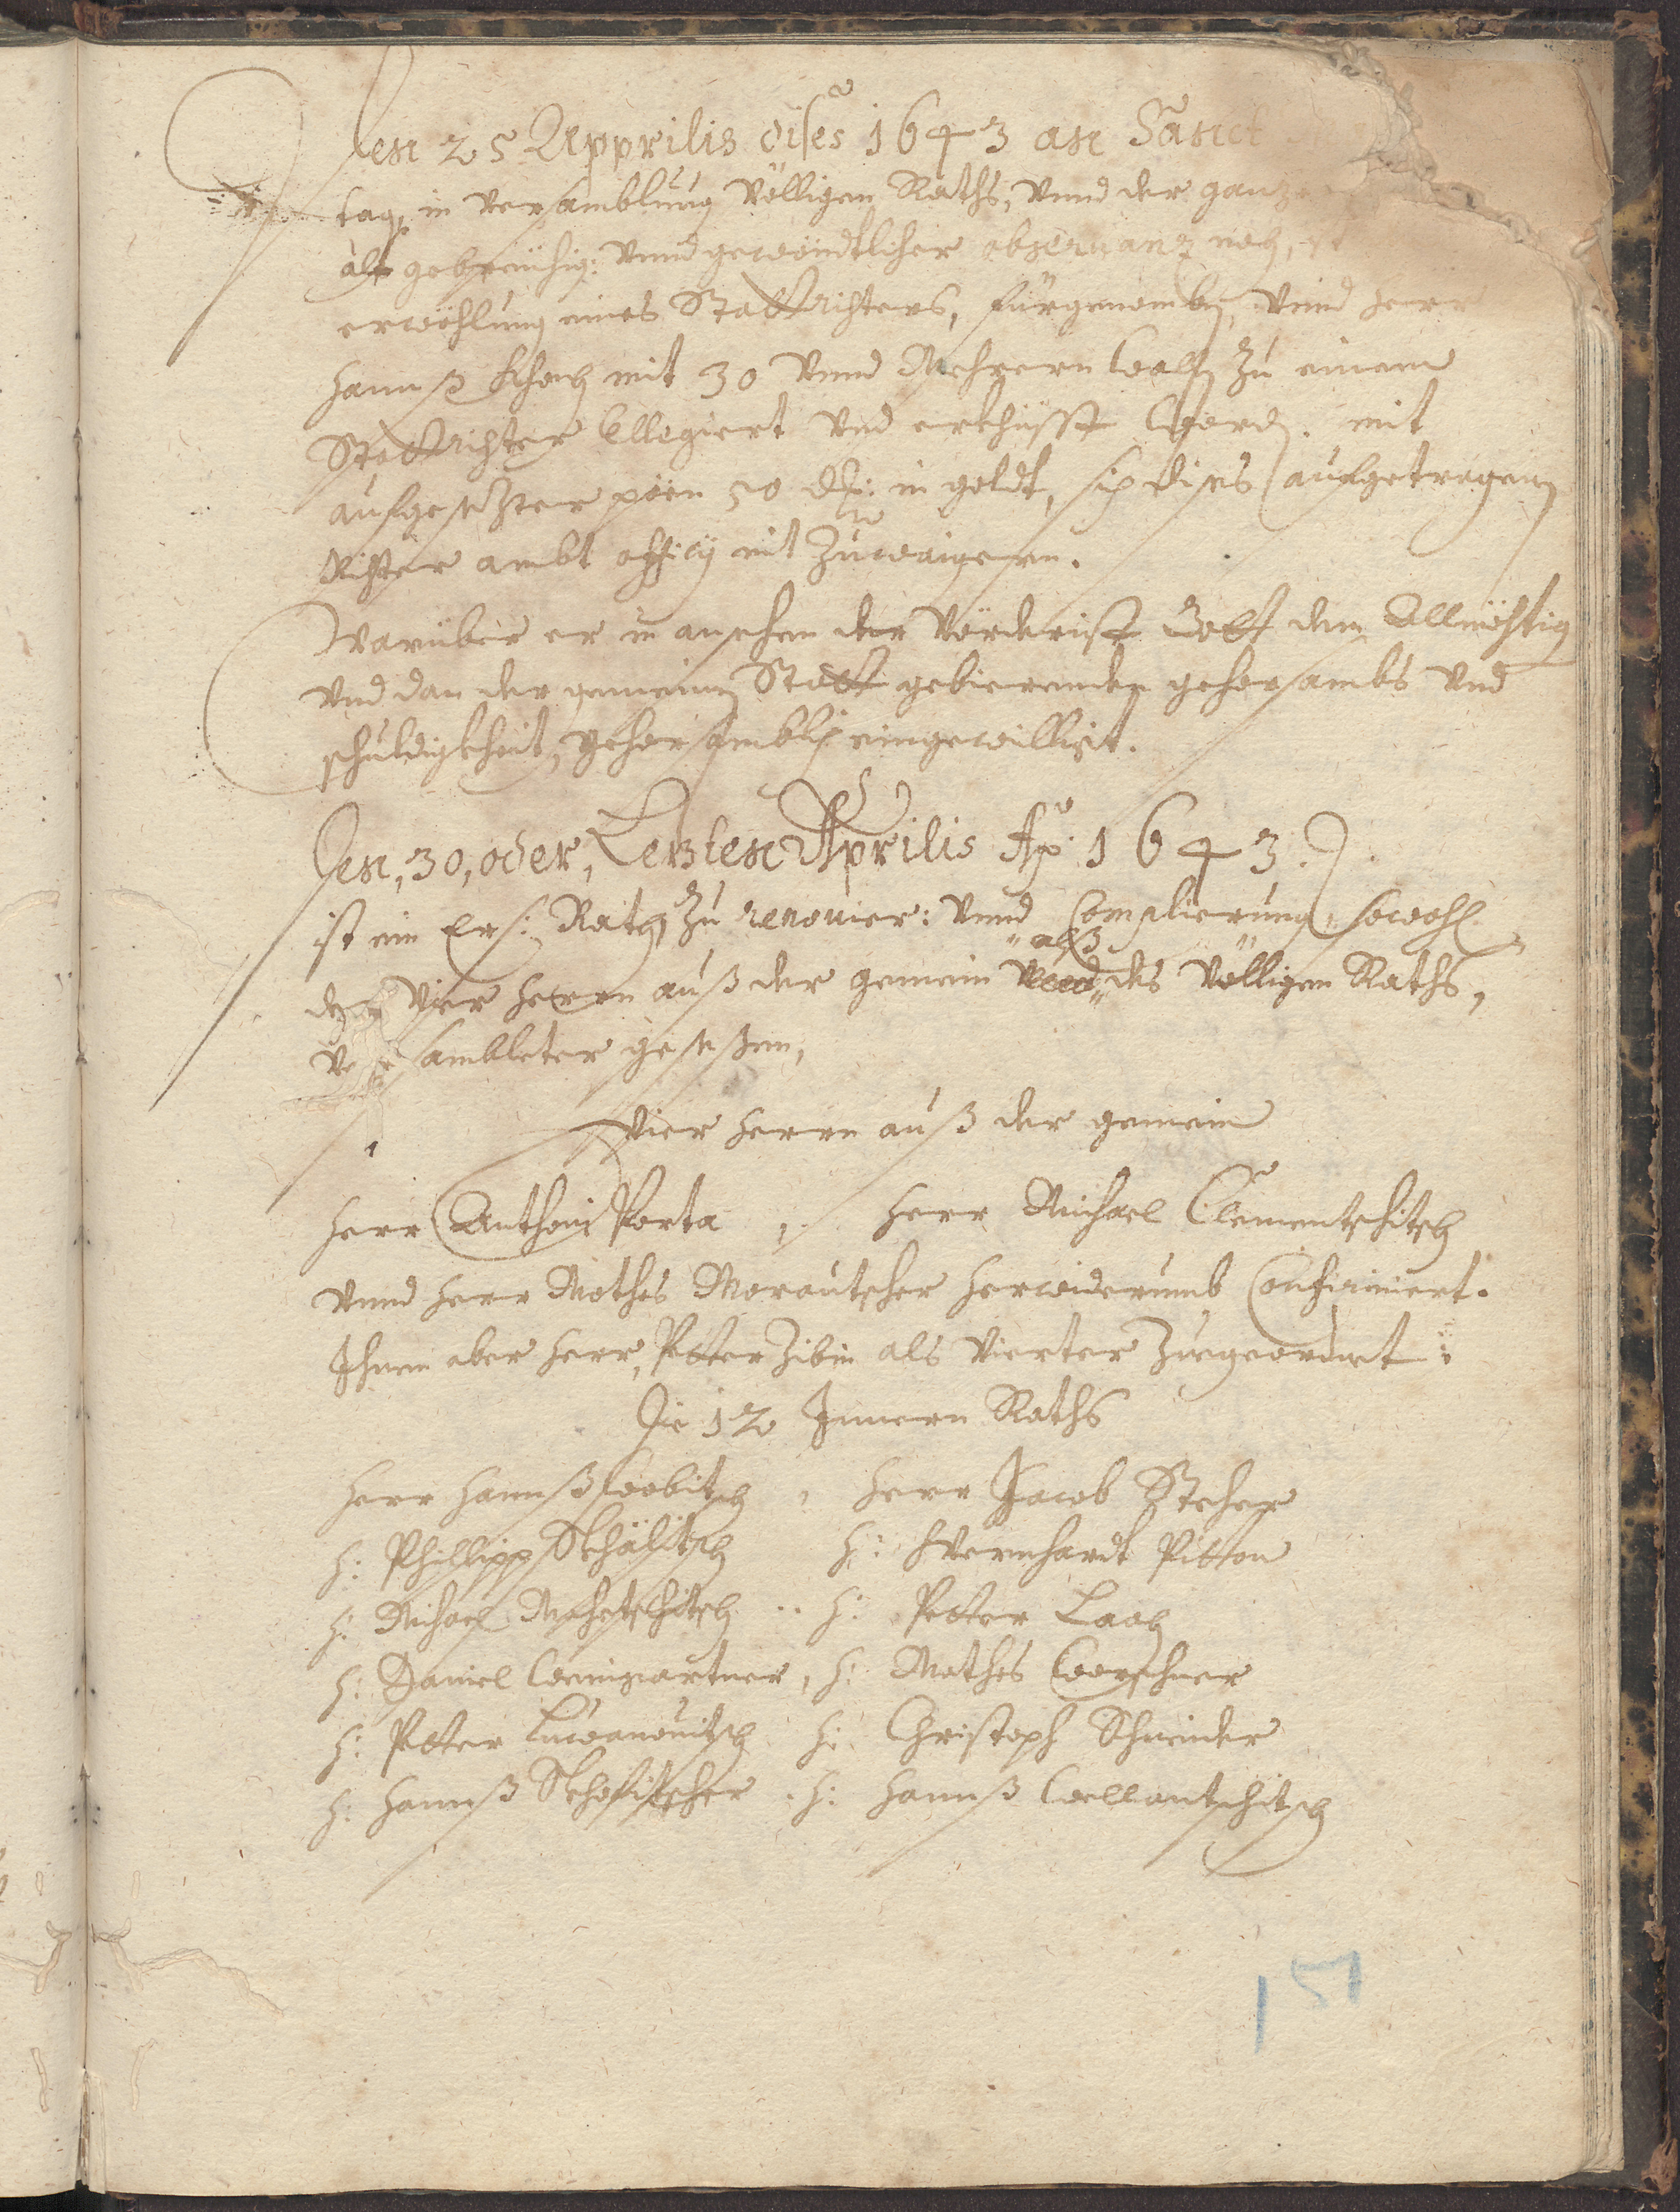 Den 25 Apprilis dises 1643 an Sanct
tag, in versamblung völligen Raths, vnnd der ganze
alt gebreuhig: vnnd gewöndtlicher obseruanz nach,
erwöhlung eines Stattrichters, fürgenomben, vnnd herr
Hannß Khoch mit 30 vnnd Mehrern Wall zu einem
Stattrichter Ellegiert vnd erkhüsst Word. mit
aufgesezter pöen 50 in goldt, sich dises aufgetragen
Richter ambt officy nit Zuwaigern.
Warüber er in ansehen der Vörderist Gott dem Allmöhtig
vnd dan der gemeinen Statt gebierenden gehorsambs vnd
schuldigkheit, gehorsamblich eingewilligt.
Den, 30, oder, Lezten Aprilis Ao: 1643.
ist ein Ers: Rath, Zu renouier: vnnd Complierung, sowohl
alß
der Vier herrn auß der gemein vnd des Völligen Raths,
versambleter gesessen,
Vier herrn auß der gemein
Herr Anthoni Porta, Herr Michael Clementschitsch
vnnd herr MathesМорautscher herwiderumb Confirmiert.
Ihnen aber herr, Petter Zibin als Vierter Zuegeordnet:
Die 12 Innern Raths
Herr Hannß Wobitsch, Herr Jacob Steher
H: Phillipp Skhälitsch H: Wernhardt Pitton
H: Michael Mahetschitsch H: Petter Laoh
H: Daniel Weingartner, H: Mathes Worschner
H: Petter Luwanouitsch H: Christoph Schneider
H: Hannß Skhofitscher H: Hannß Wellantschitsch
151